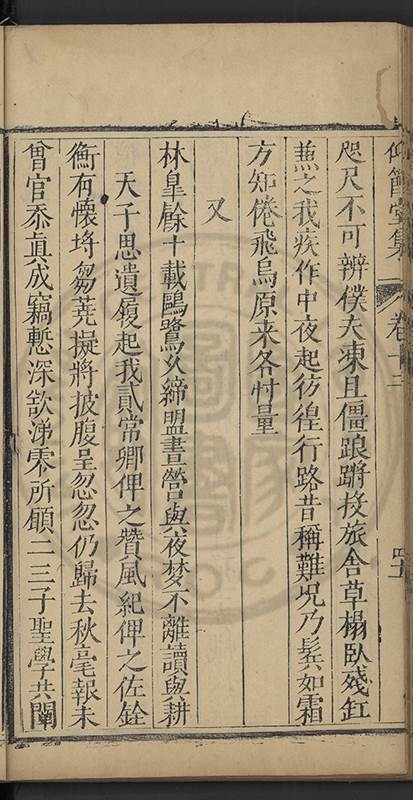 仰節堂集 卷十三 四五
咫尺不可辨僕夫凍且僵踉蹡投旅舍草榻臥殘缸
蕉之我疾作中夜起彷徨行路昔稱難況乃鬂如霜
方知倦飛鳥原来各忖量
又
林臯餘十載鷗鷺久締盟晝營與夜梦不離讀與耕
天子思遺履起我貳常卿俾之贊風紀俾之佐銓
衡有懷埓芻蕘擬將披腹呈忽忽仍歸去秋毫報未
曾官忝真成竊慙深欲涕零所願二三子聖學共闡